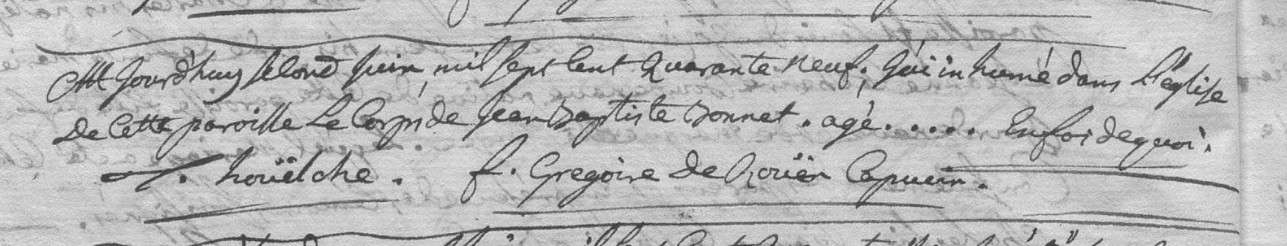 Aujourd'huy second juin mil sept cent Quarante neuf, J'ai inhumé dans L'église
De Cette paroisse Le Corps de Jean Baptiste Bonnet . agé ..... En foi de quoi .
houëlche . f. Gregoire De Roüen Capucin .